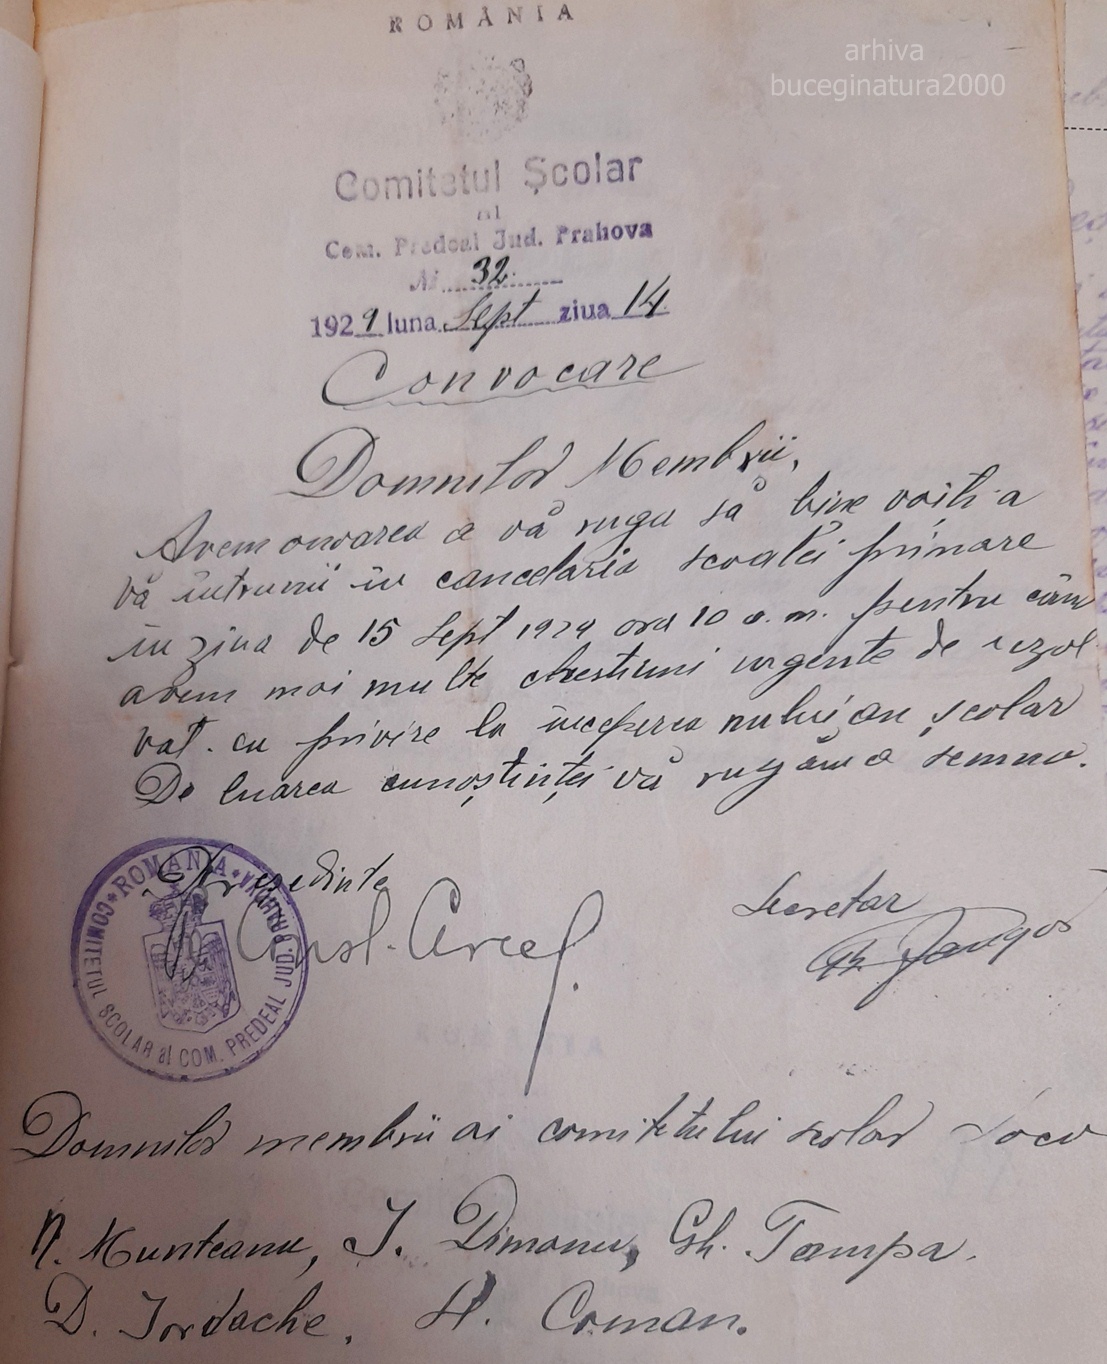 ROMÂNIA
arhiva
buceginatura2000
Comitetul Școlar
al
Com. Predeal Jud. Prahova
Nr 32
1929 luna Sept ziua 14
Convocare
Domnilor Membrii,
Avem onoarea a vă ruga să bine voiți a
vă întrunii în cancelaria scoalei primare
in ziua de 15 Sept 1929 ora 10 a.m. pentru că
avem mai multe chestiuni urgente de rezol
vat. cu privire la începerea nului an școlar
De luarea cunoștinței vă rugăm a semna.
Președinte
Const.
Secretar
COMITETUL SCOLAR al COM. PREDEAL JUD. PRAHOVA * ROMANIA *
Domnilor membrii ai comitetului scolar Loco
N. Munteanu, I. Dimanu, Gh. Tampa.
D. Iordache, H. Coman.